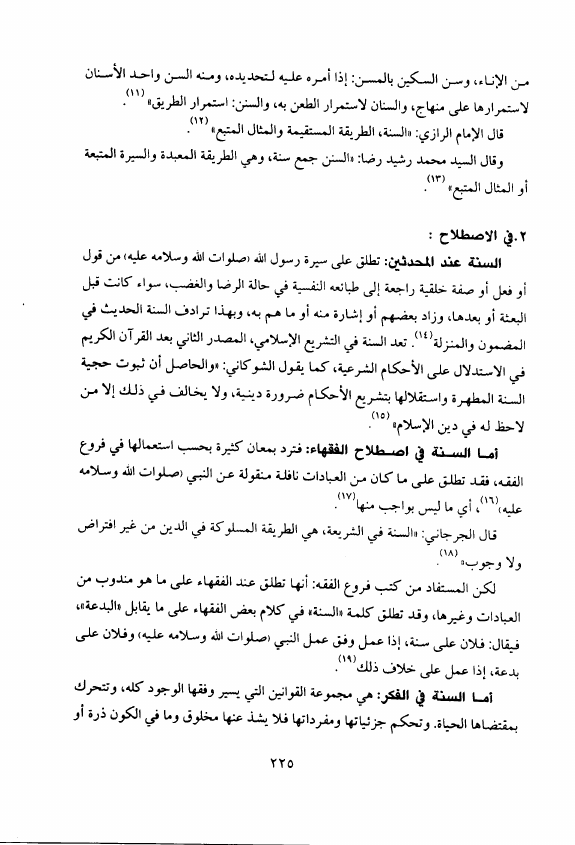 من الإناء، وسن السكين بالمسن: إذا أمره عليه لتحديده، ومنه السن واحد الأسنان
لاستمرارها على منهاج، والسنان لاستمرار الطعن به، والسنن: استمرار الطريق» (١١).
قال الإمام الرازي: «السنة، الطريقة المستقيمة والمثال المتبع» (١٢).
وقال السيد محمد رشيد رضا: «السنن جمع سنة، وهي الطريقة المعبدة والسيرة المتبعة
أو المثال المتبع» (١٣).
٢.في الاصطلاح :
السنة عند المحدثين: تطلق على سيرة رسول الله (صلوات الله وسلامه عليه) من قول
أو فعل أو صفة خلقية راجعة إلى طبائعه النفسية في حالة الرضا والغضب، سواء كانت قبل
البعثة أو بعدها، وزاد بعضهم أو إشارة منه أو ما هم به، وبهذا ترادف السنة الحديث في
المضمون والمنزلة (١٤). تعد السنة في التشريع الإسلامي، المصدر الثاني بعد القرآن الكريم
في الاستدلال على الأحكام الشرعية، كما يقول الشوكاني: «والحاصل أن ثبوت حجية
السنة المطهرة واستقلالها بتشريع الأحكام ضرورة دينية، ولا يخالف في ذلك إلا من
لاحظ له في دين الإسلام» (١٥).
أما السنة في اصطلاح الفقهاء: فترد بمعان كثيرة بحسب استعمالها في فروع
الفقه، فقد تطلق على ما كان من العبادات نافلة منقولة عن النبي (صلوات الله وسلامه
عليه) (١٦)، أي ما ليس بواجب منها (١٧).
قال الجرجاني: «السنة في الشريعة، هي الطريقة المسلوكة في الدين من غير افتراض
ولا وجوب» (١٨).
لكن المستفاد من كتب فروع الفقه: أنها تطلق عند الفقهاء على ما هو مندوب من
العبادات وغيرها، وقد تطلق كلمة «السنة» في كلام بعض الفقهاء على ما يقابل «البدعة»،
فيقال: فلان على سنة، إذا عمل وفق عمل النبي (صلوات الله وسلامه عليه) وفلان على
بدعة، إذا عمل على خلاف ذلك (١٩).
أما السنة في الفكر: هي مجموعة القوانين التي يسير وفقها الوجود كله، وتتحرك
بمقتضاها الحياة. وتحكم جزئياتها ومفرداتها فلا يشذ عنها مخلوق وما في الكون ذرة أو
٢٢٥